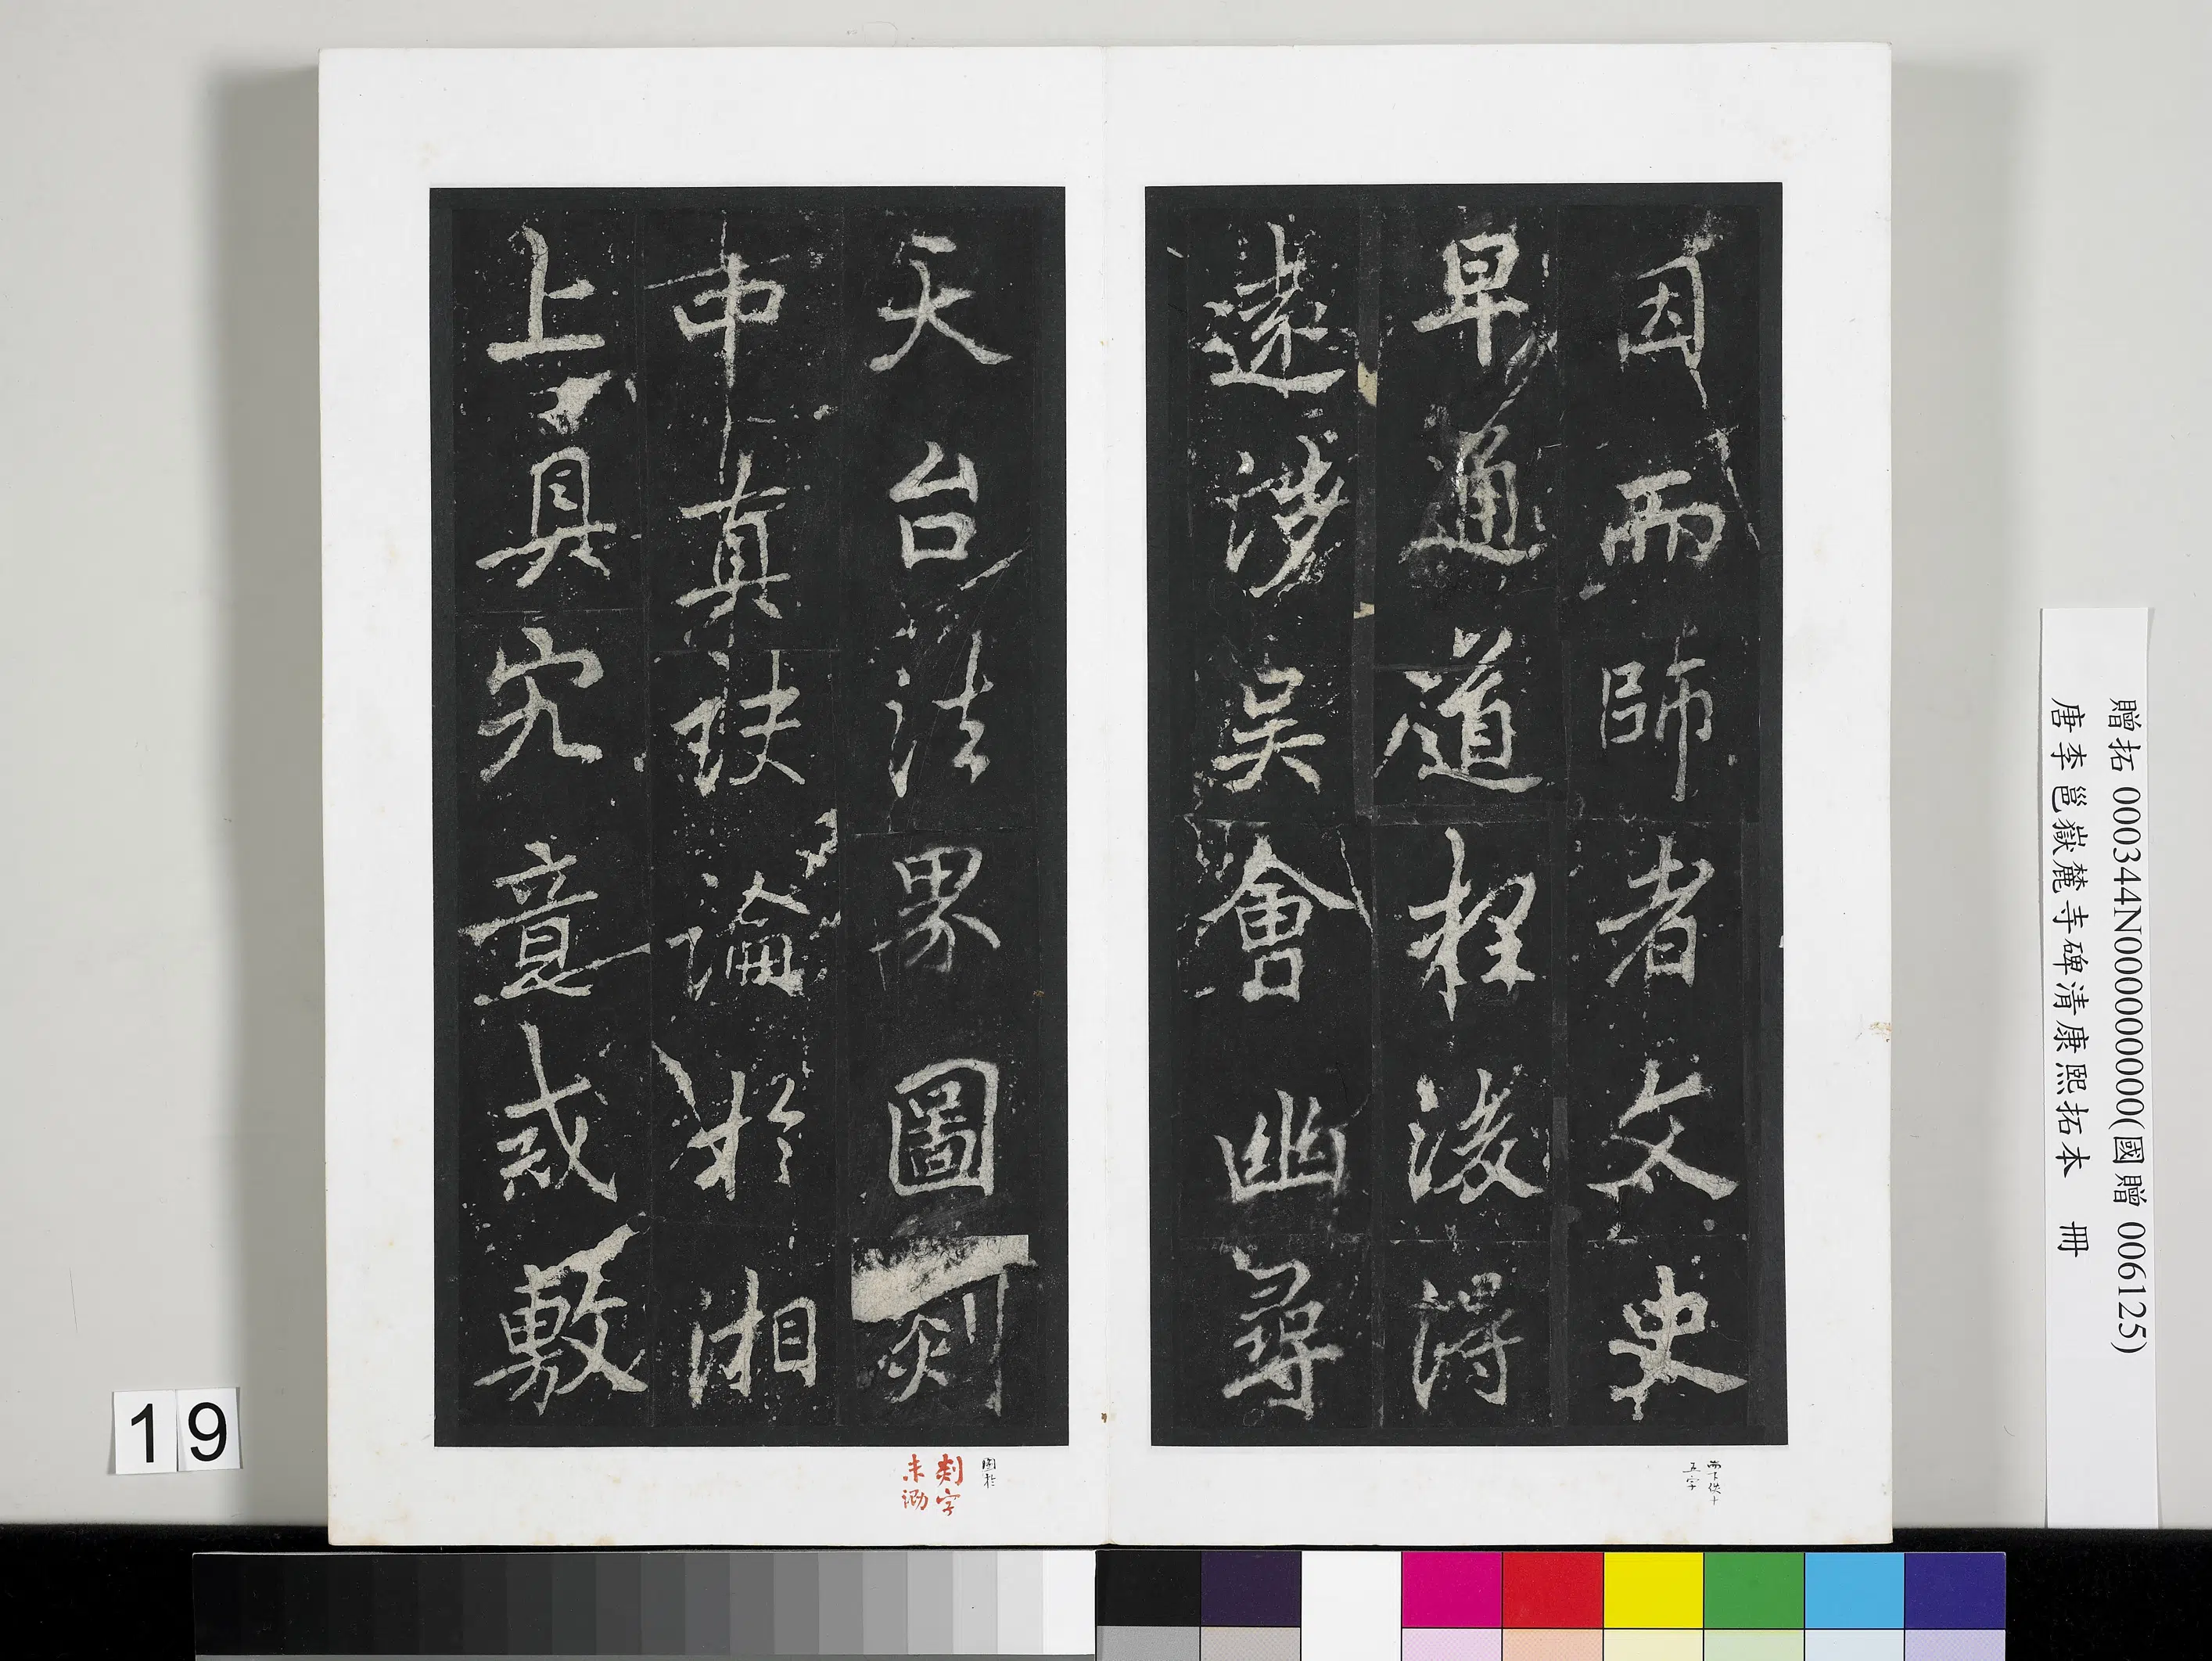 因而師者文史
早通道程後得
遠涉吳會幽尋
天台法界圖剡
中真訣論於湘
上具究意或敷
而下佚十
五字
圖於
剡字
未泐
贈拓 000344N000000000(國贈 006125)
唐李邕嶽麓寺碑清康熙拓本 冊
19